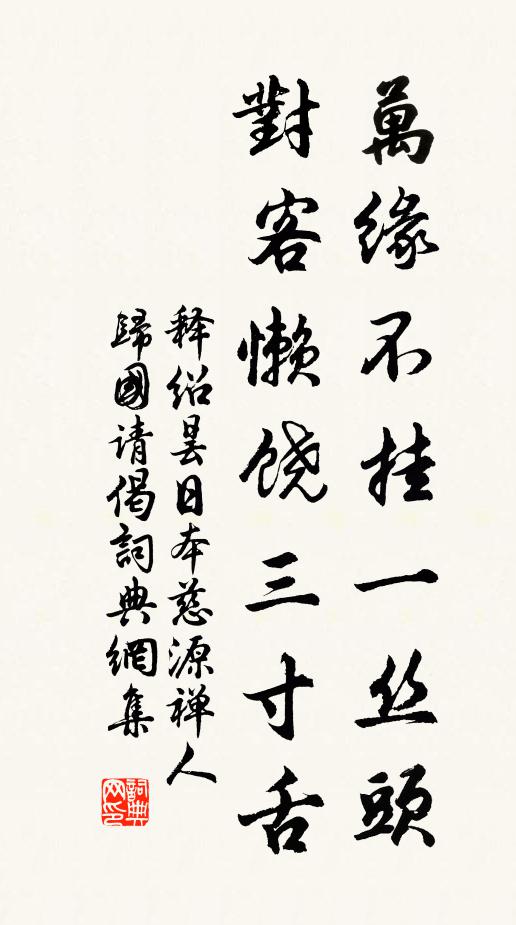 萬緣不挂一丝頭
對客懶饶三寸舌
释绍昙日本慈源禅人
歸國请偈詞典網集
詞典网印